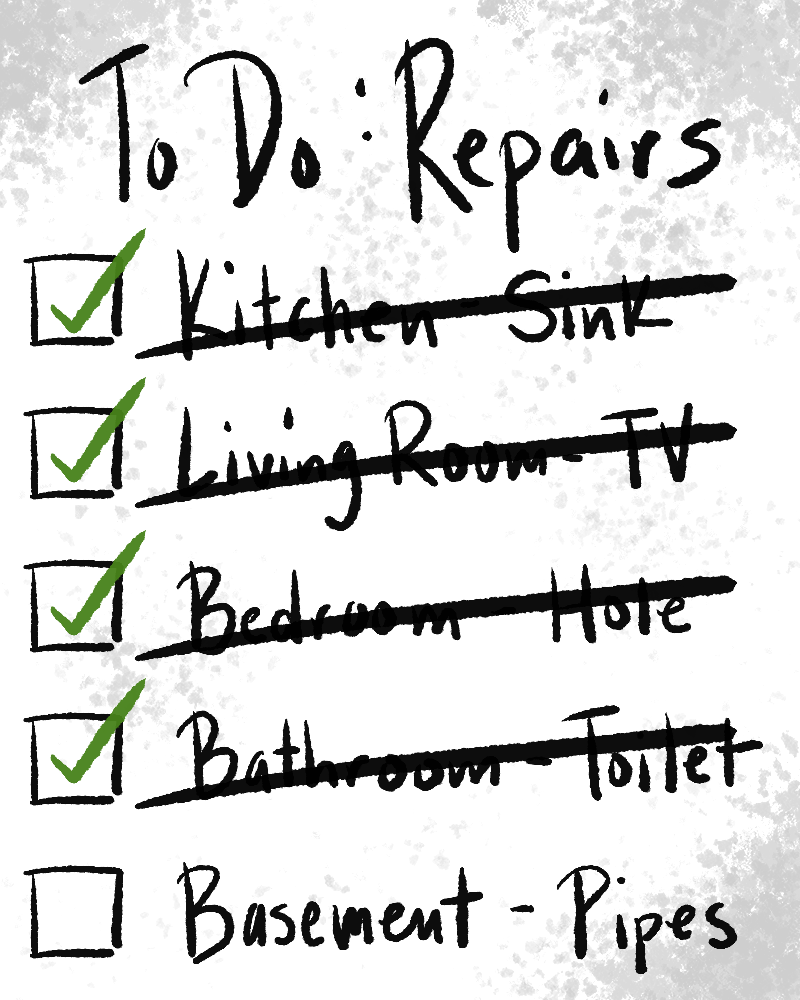 To Do: Repairs
Kitchen - Sink
Living Room - TV
Bedroom - Hole
Bathroom - Toilet
Basement - Pipes